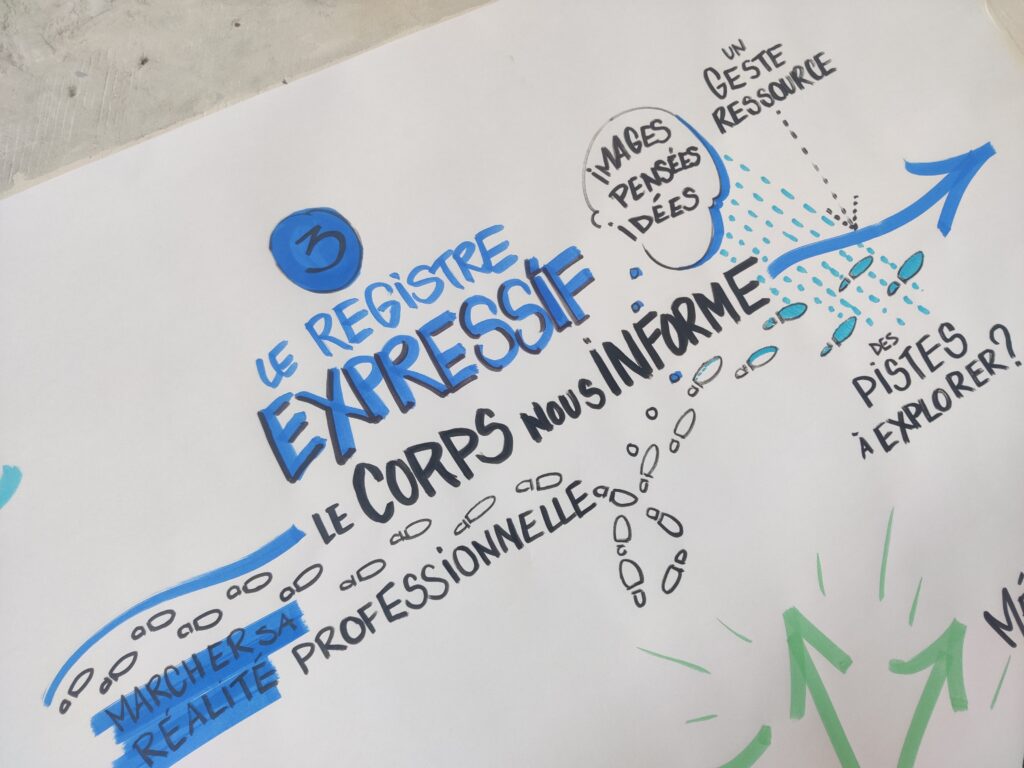 3
LE REGISTRE
EXPRESSIF
LE CORPS NOUS INFORME
MARCHER SA
RÉALITÉ PROFESSIONNELLE
IMAGES
PENSÉES
IDÉES
UN
GESTE
RESSOURCE
DES
PISTES
À EXPLORER?